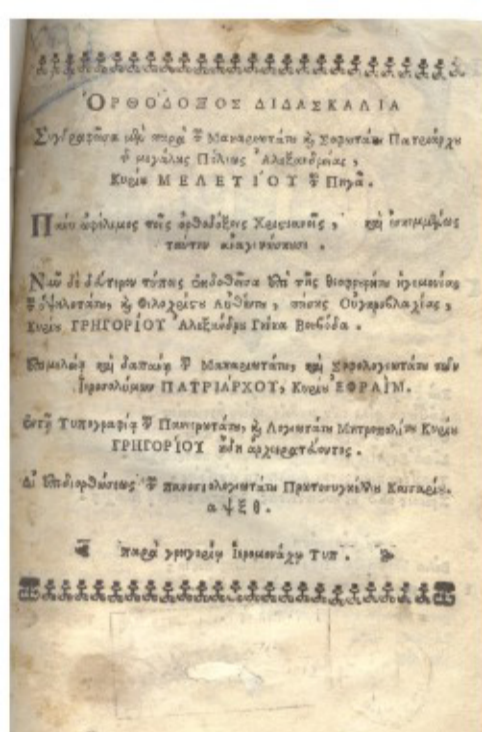 ὈΡΘΌΔΟΞΟΣ ΔΙΔΑΣΚΑΛΊΑ
Συγγραφεῖσα μὲν παρὰ τῦ Μακαριωτάτυ ϗ Σοφωτάτυ Πατριάρχυ
τῆς μεγάλης Πόλεως Ἀλεξανδρείας,
Κυρίυ ΜΕΛΕΤΊΟΥ τῦ Πηγᾶ.
Πάνυ ὠφέλιμος τοῖς ὀρθοδόξοις Χριστιανοῖς, καὶ ἐσκεμμένως
ταύτην ἀναγινώσκυσι.
Νῦν δὲ δεύτερον τύποις ἐκδοθεῖσα ὑπὸ τῆς θεοφρυρήτυ ἡγεμονίας
τῦ ὑψηλοτάτυ, ϗ Φιλοχρίστυ Αὐθέντυ, πάσης Οὐγκροβλαχίας,
Κυρίυ ΓΡΗΓΟΡΊΟΥ Ἀλεξάνδρυ Γκίκα Βοεβόδα.
Ἐπιμελείᾳ καὶ δαπάνῃ τῦ Μακαριωτάτυ, καὶ Σοφολογιωτάτυ τῶν
Ἱεροσολύμων ΠΑΤΡΙΆΡΧΟΥ, Κυρίυ ἘΦΡΑῚΜ.
Ἐν τῇ Τυπογραφίᾳ τῦ Πανιερωτάτυ, ϗ Λογιωτάτυ Μητροπολίτυ Κυρίυ
ΓΡΗΓΟΡΊΟΥ ἤδη ἀρχιερατεύοντος.
Δι' ἐπιδιορθώσεως τῦ πανοσιολογιωτάτυ Πρωτοσυγκέλλυ Καισαρίυ.
αψξθ.
παρὰ γρηγορίῳ Ἱερομονάχῳ Τυπ.